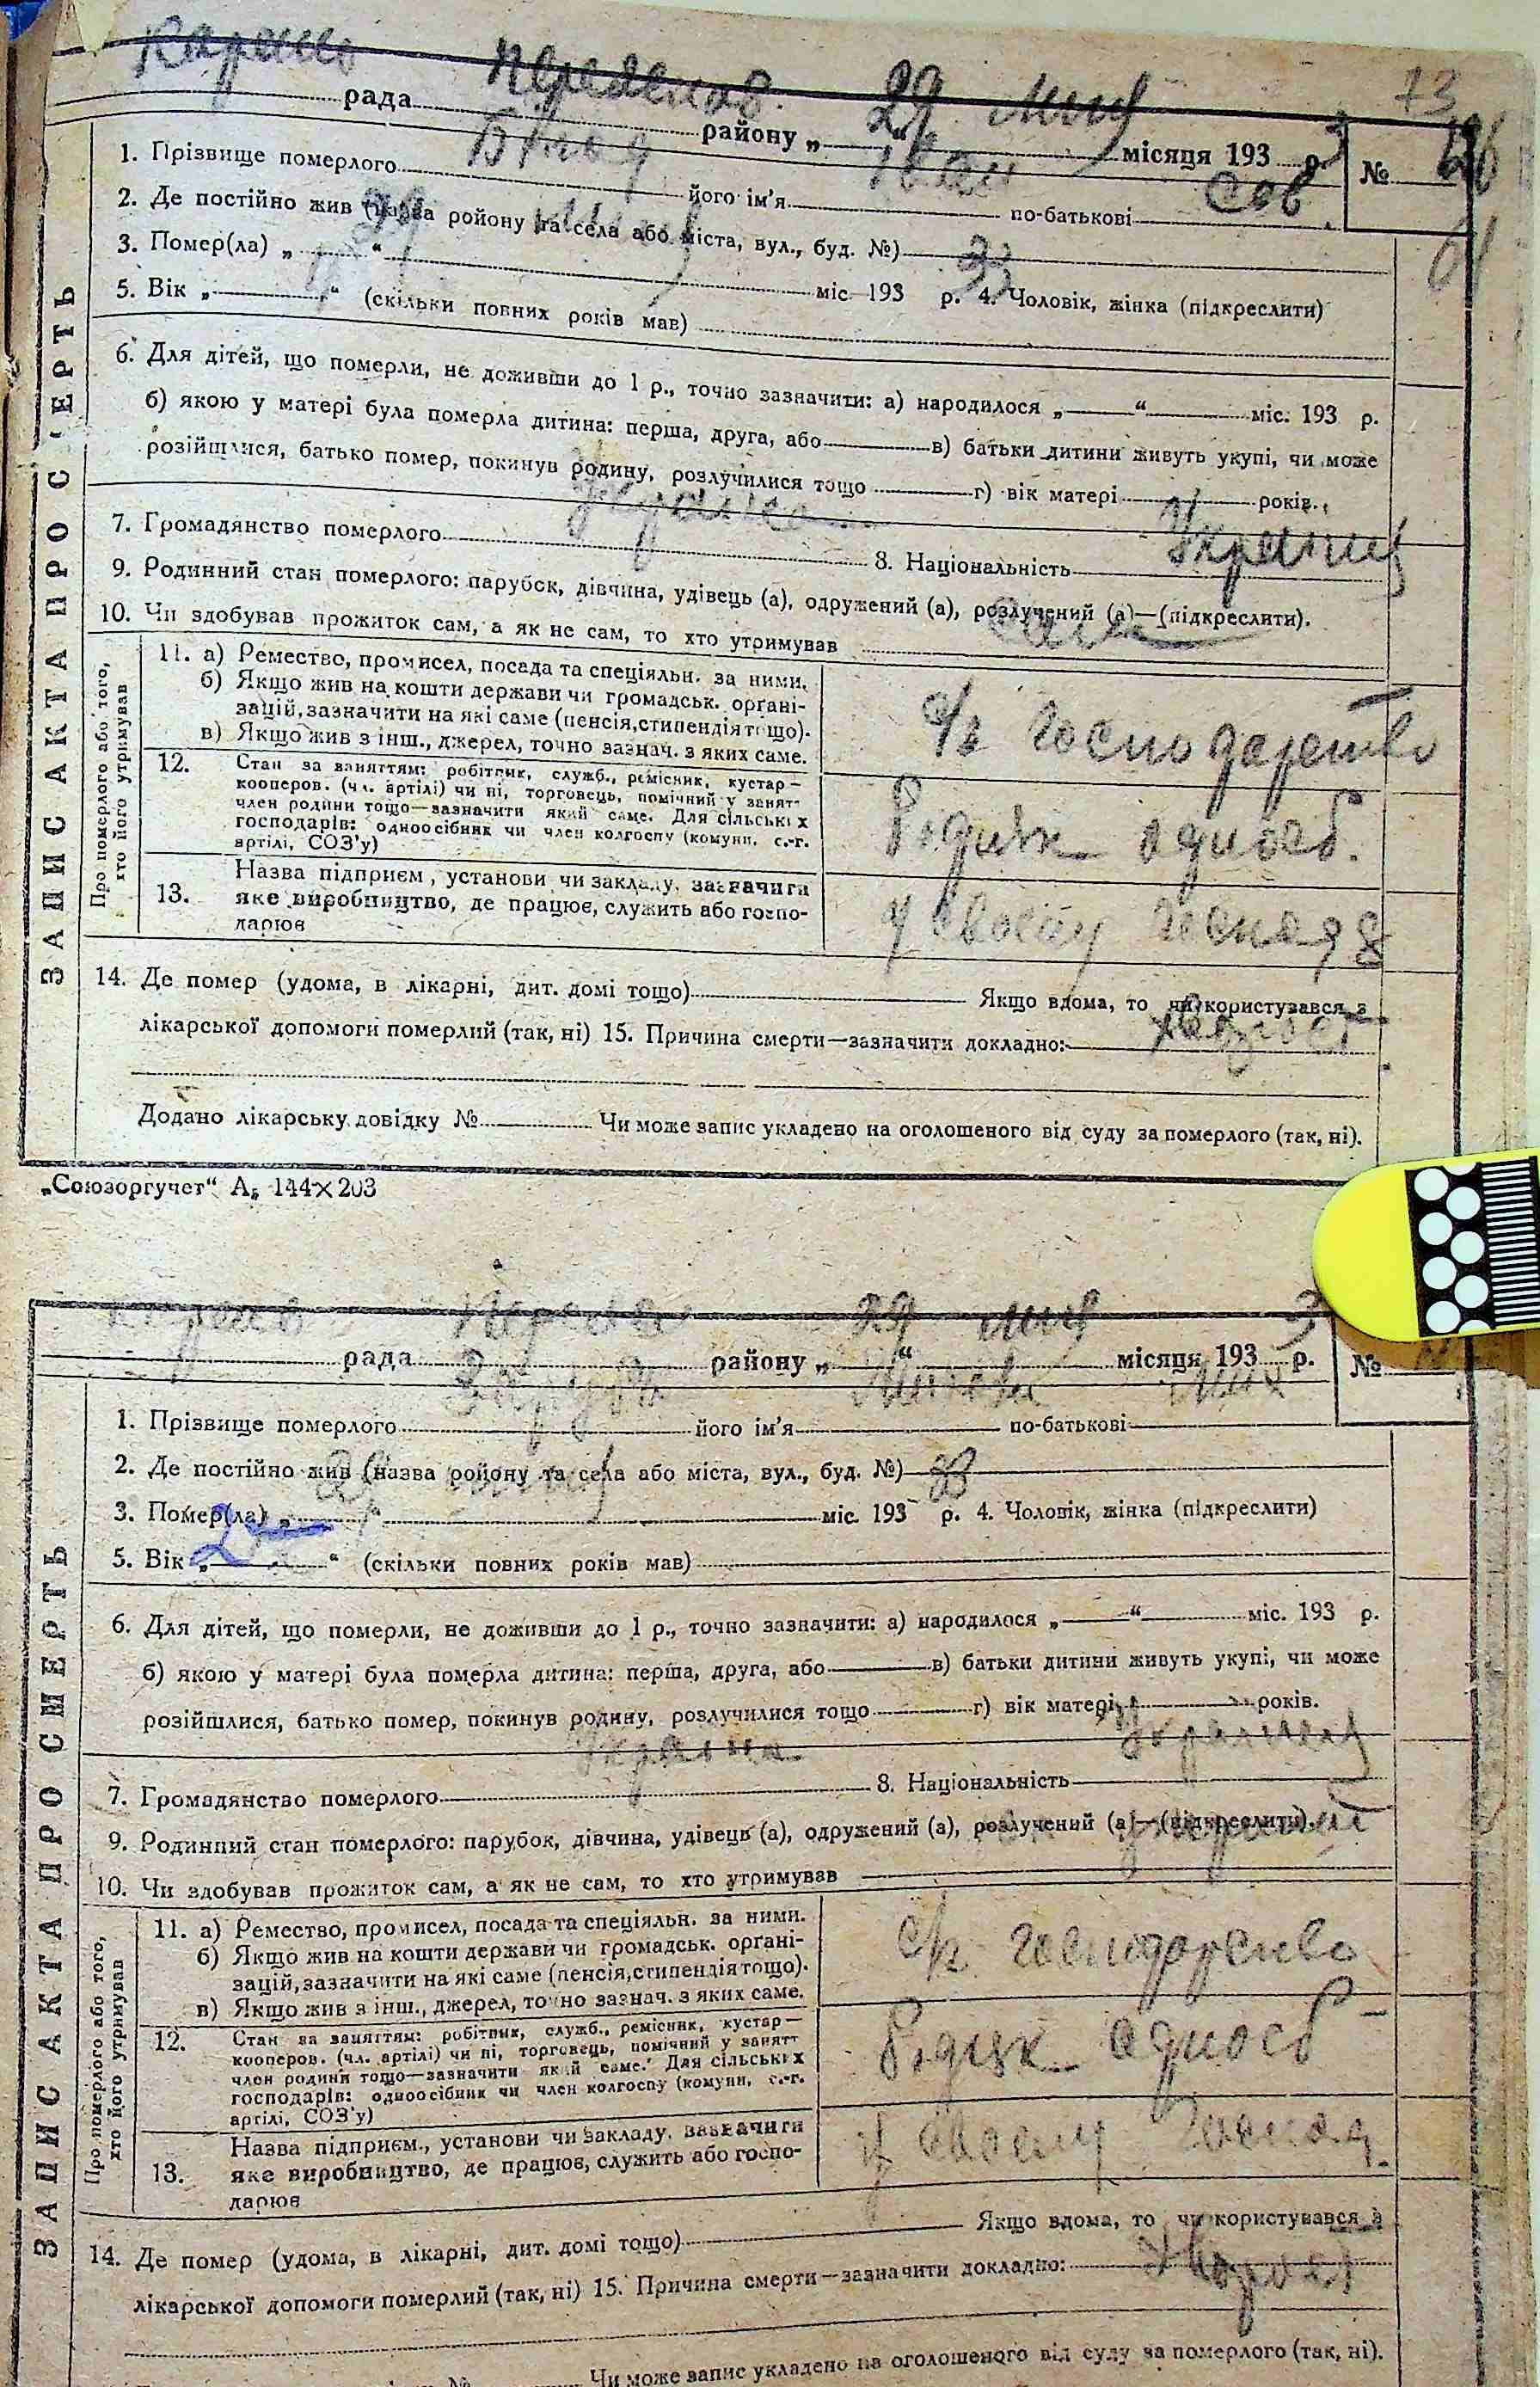 73
рада района „ 29 “ місяця 193 3 р. №
1. Прізвище померлого його ім'я Іван по-батькові Сав
2. Де постійно жив (назва ройону та села або міста, вул., буд. №)
3. Помер(ла) „ 29 “ міс 193 33 р. 4. Чоловік, жінка (підкреслити)
5. Вік „ “ (скільки повних років мав)
6. Для дітей, що померли, не доживши до 1 р., точно зазначити: а) народилося „ “ міс. 193 р.
б) якою у матері була померла дитина: перша, друга, або в) батьки дитини живуть укупі, чи може
розійшлися, батько помер, покинув родину, розлучилися тощо г) вік матері років.
7. Громадянство померлого 8. Національність Украинец
9. Родинний стан померлого: парубок, дівчина, удівець (а), одружений (а), розлучений (а)—(підкреслити).
10. Чи здобував прожиток сам, а як не сам, то хто утримував сам
ЗАПИС АКТА ПРО СМЕРТЬ
Про померлого або того, хто його утримував
11. а) Ремество, промисел, посада та спеціяльн. за ними.
б) Якщо жив на кошти держави чи громадськ. орґані-
зацій, зазначити на які саме (пенсія, стипендія тощо).
в) Якщо жив з інш., джерел, точно зазнач. з яких саме.
с/г господарство
12. Стан за заняттям: робітник, служб., ремісник, кустар—
кооперов. (чл. артілі) чи ні, торговець, помічний у занят-
член родини тощо—зазначити який саме. Для сільських
господарів: одноосібник чи член колгоспу (комуни, с.-г.
артілі, СОЗ'у)
одноос.
13. Назва підприєм., установи чи закладу, зазначити
яке виробництво, де працює, служить або госпо-
дарює
у своєму господ
14. Де помер (удома, в лікарні, дит. домі тощо) Якщо вдома, то чи користувався з
лікарської допомоги померлий (так, ні) 15. Причина смерти—зазначити докладно:
Додано лікарську довідку № Чи може запис укладено на оголошеного від суду за померлого (так, ні).
„Союзоргучет“ А₅ 144×203
рада району „ 29 “ місяця 193 3 р. №
1. Прізвище померлого його ім'я по-батькові
2. Де постійно жив (назва ройону та села або міста, вул., буд. №)
3. Помер(ла) „ 29 “ міс. 193 33 р. 4. Чоловік, жінка (підкреслити)
5. Вік „ 2 “ (скільки повних років мав)
6. Для дітей, що померли, не доживши до 1 р., точно зазначити: а) народилося „ “ міс. 193 р.
б) якою у матері була померла дитина: перша, друга, або в) батьки дитини живуть укупі, чи може
розійшлися, батько помер, покинув родину, розлучилися тощо г) вік матері років.
7. Громадянство померлого Україна 8. Національність Украинец
9. Родинний стан померлого: парубок, дівчина, удівець (а), одружений (а), розлучений (а)—(підкреслити).
10. Чи здобував прожиток сам, а як не сам, то хто утримував
ЗАПИС АКТА ПРО СМЕРТЬ
Про померлого або того, хто його утримував
11. а) Ремество, промисел, посада та спеціяльн. за ними.
б) Якщо жив на кошти держави чи громадськ. орґані-
зацій, зазначити на які саме (пенсія, стипендія тощо).
в) Якщо жив з інш., джерел, точно зазнач. з яких саме.
с/г господарство
12. Стан за заняттям: робітник, служб., ремісник, кустар—
кооперов. (чл. артілі) чи ні, торговець, помічний у занятт
член родини тощо—зазначити який саме. Для сільських
господарів: одноосібник чи член колгоспу (комуни, с.-г.
артілі, СОЗ'у)
одноос
13. Назва підприєм., установи чи закладу, зазначити
яке виробництво, де працює, служить або госпо-
дарює
у своєму господ.
14. Де помер (удома, в лікарні, дит. домі тощо) Якщо вдома, то чи користувався з
лікарської допомоги померлий (так, ні) 15. Причина смерти—зазначити докладно:
№ Чи може запис укладено на оголошеного від суду за померлого (так, ні).